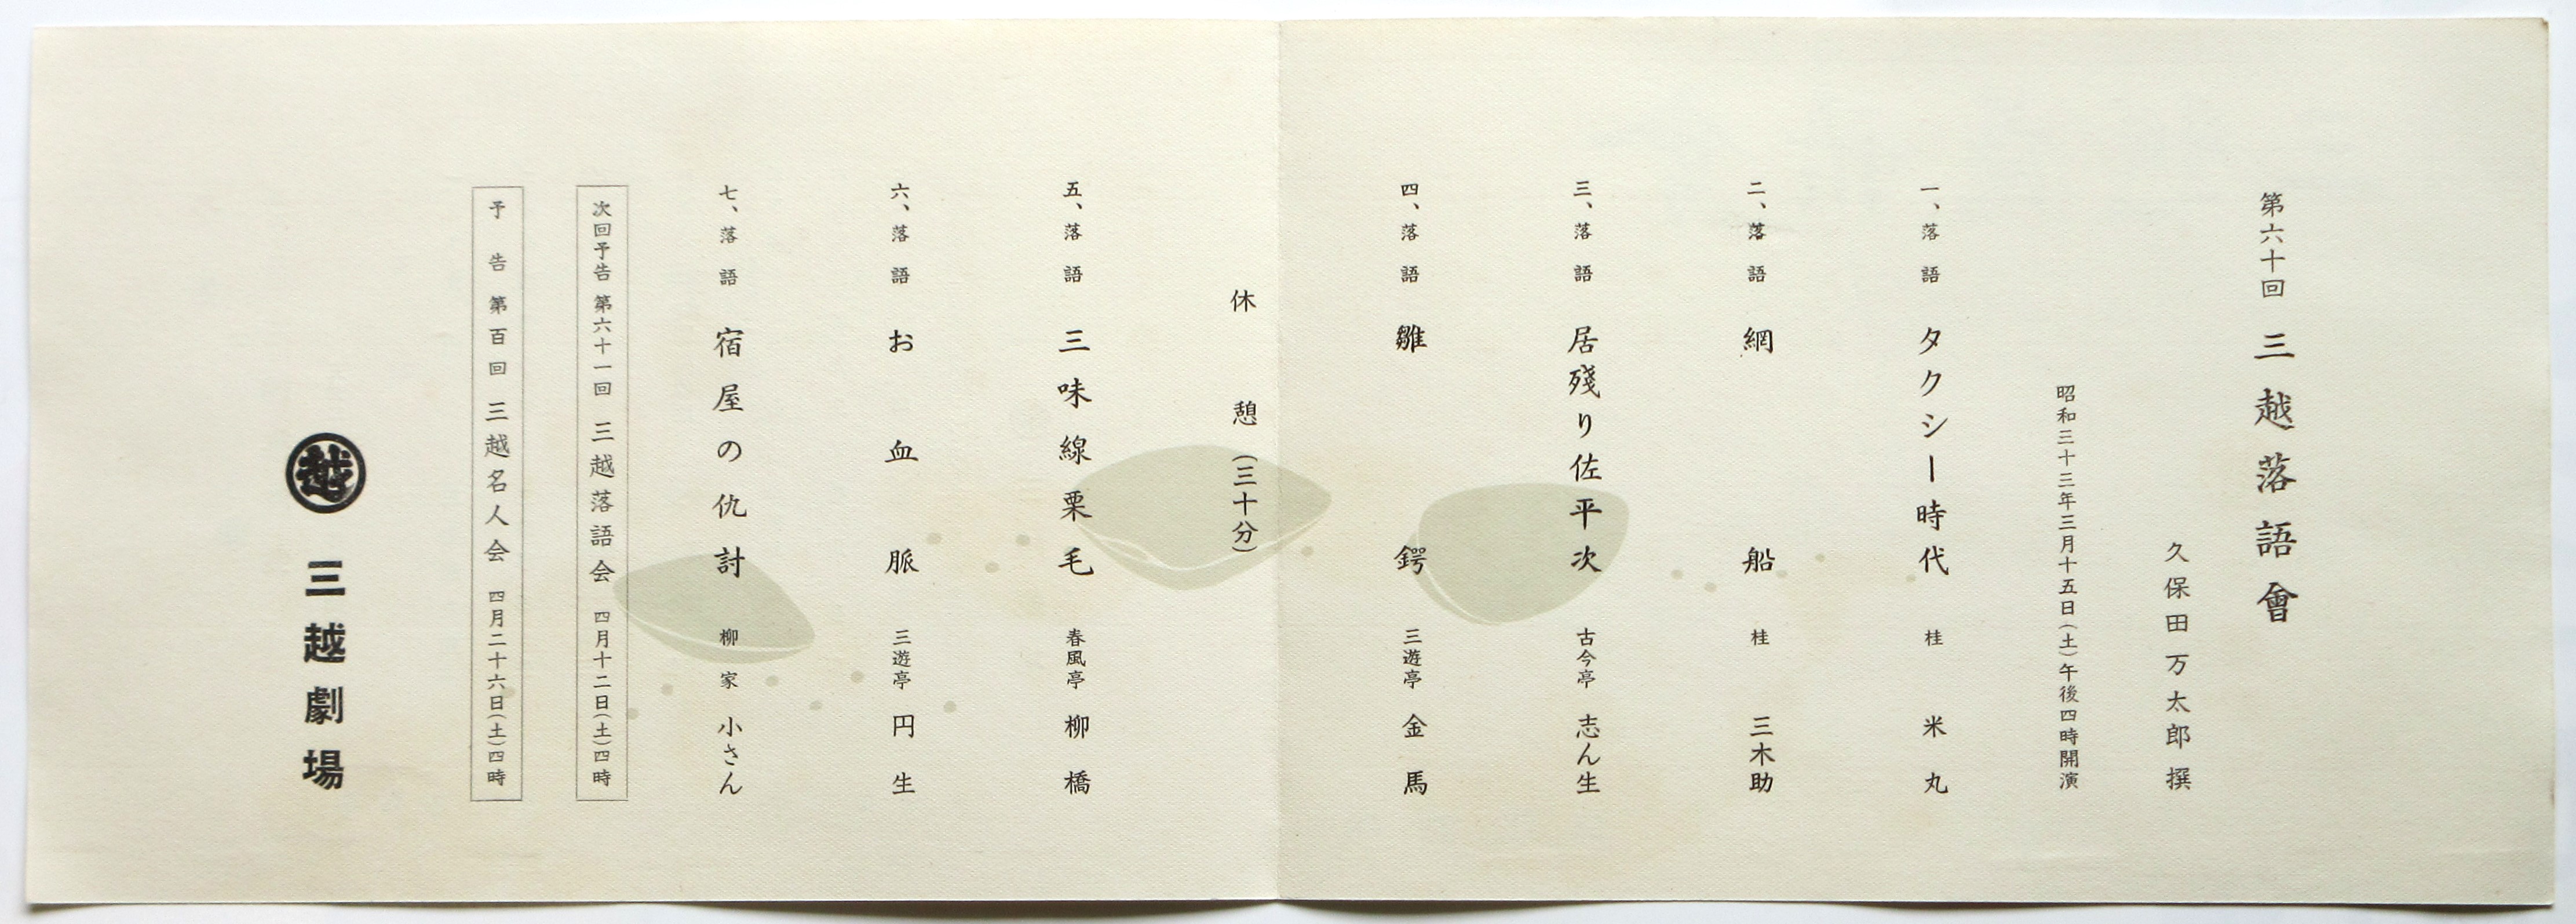 第六十回 三越落語會
久保田万太郎 撰
昭和三十三年三月十五日(土)午後四時開演
一、落語 タクシー時代 桂 米丸
二、落語 網船 桂 三木助
三、落語 居残り佐平次 古今亭 志ん生
四、落語 雛鍔 三遊亭 金馬
休憩(三十分)
五、落語 三味線栗毛 春風亭 柳橋
六、落語 お血脈 三遊亭 円生
七、落語 宿屋の仇討 柳家 小さん
次回予告 第六十一回 三越落語会 四月十二日(土)四時
予告 第百回 三越名人会 四月二十六日(土)四時
越 三越劇場